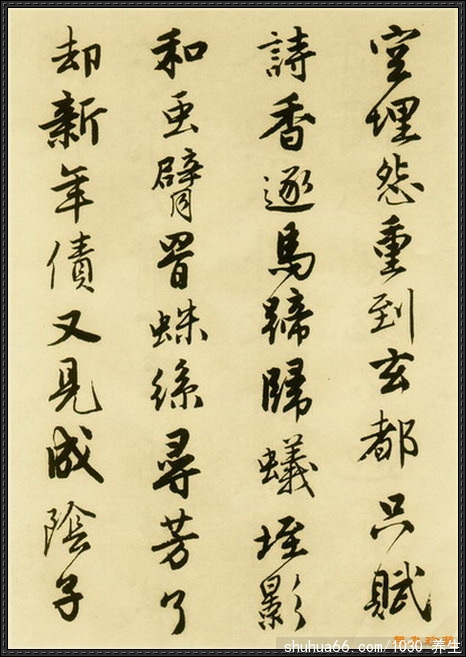 空埋怨重到玄都只賦
詩香逐馬蹄歸蟻垤影
和虫臂罥蛛絲尋芳了
却新年債又見成陰子
shuhua66.com/1030 养生